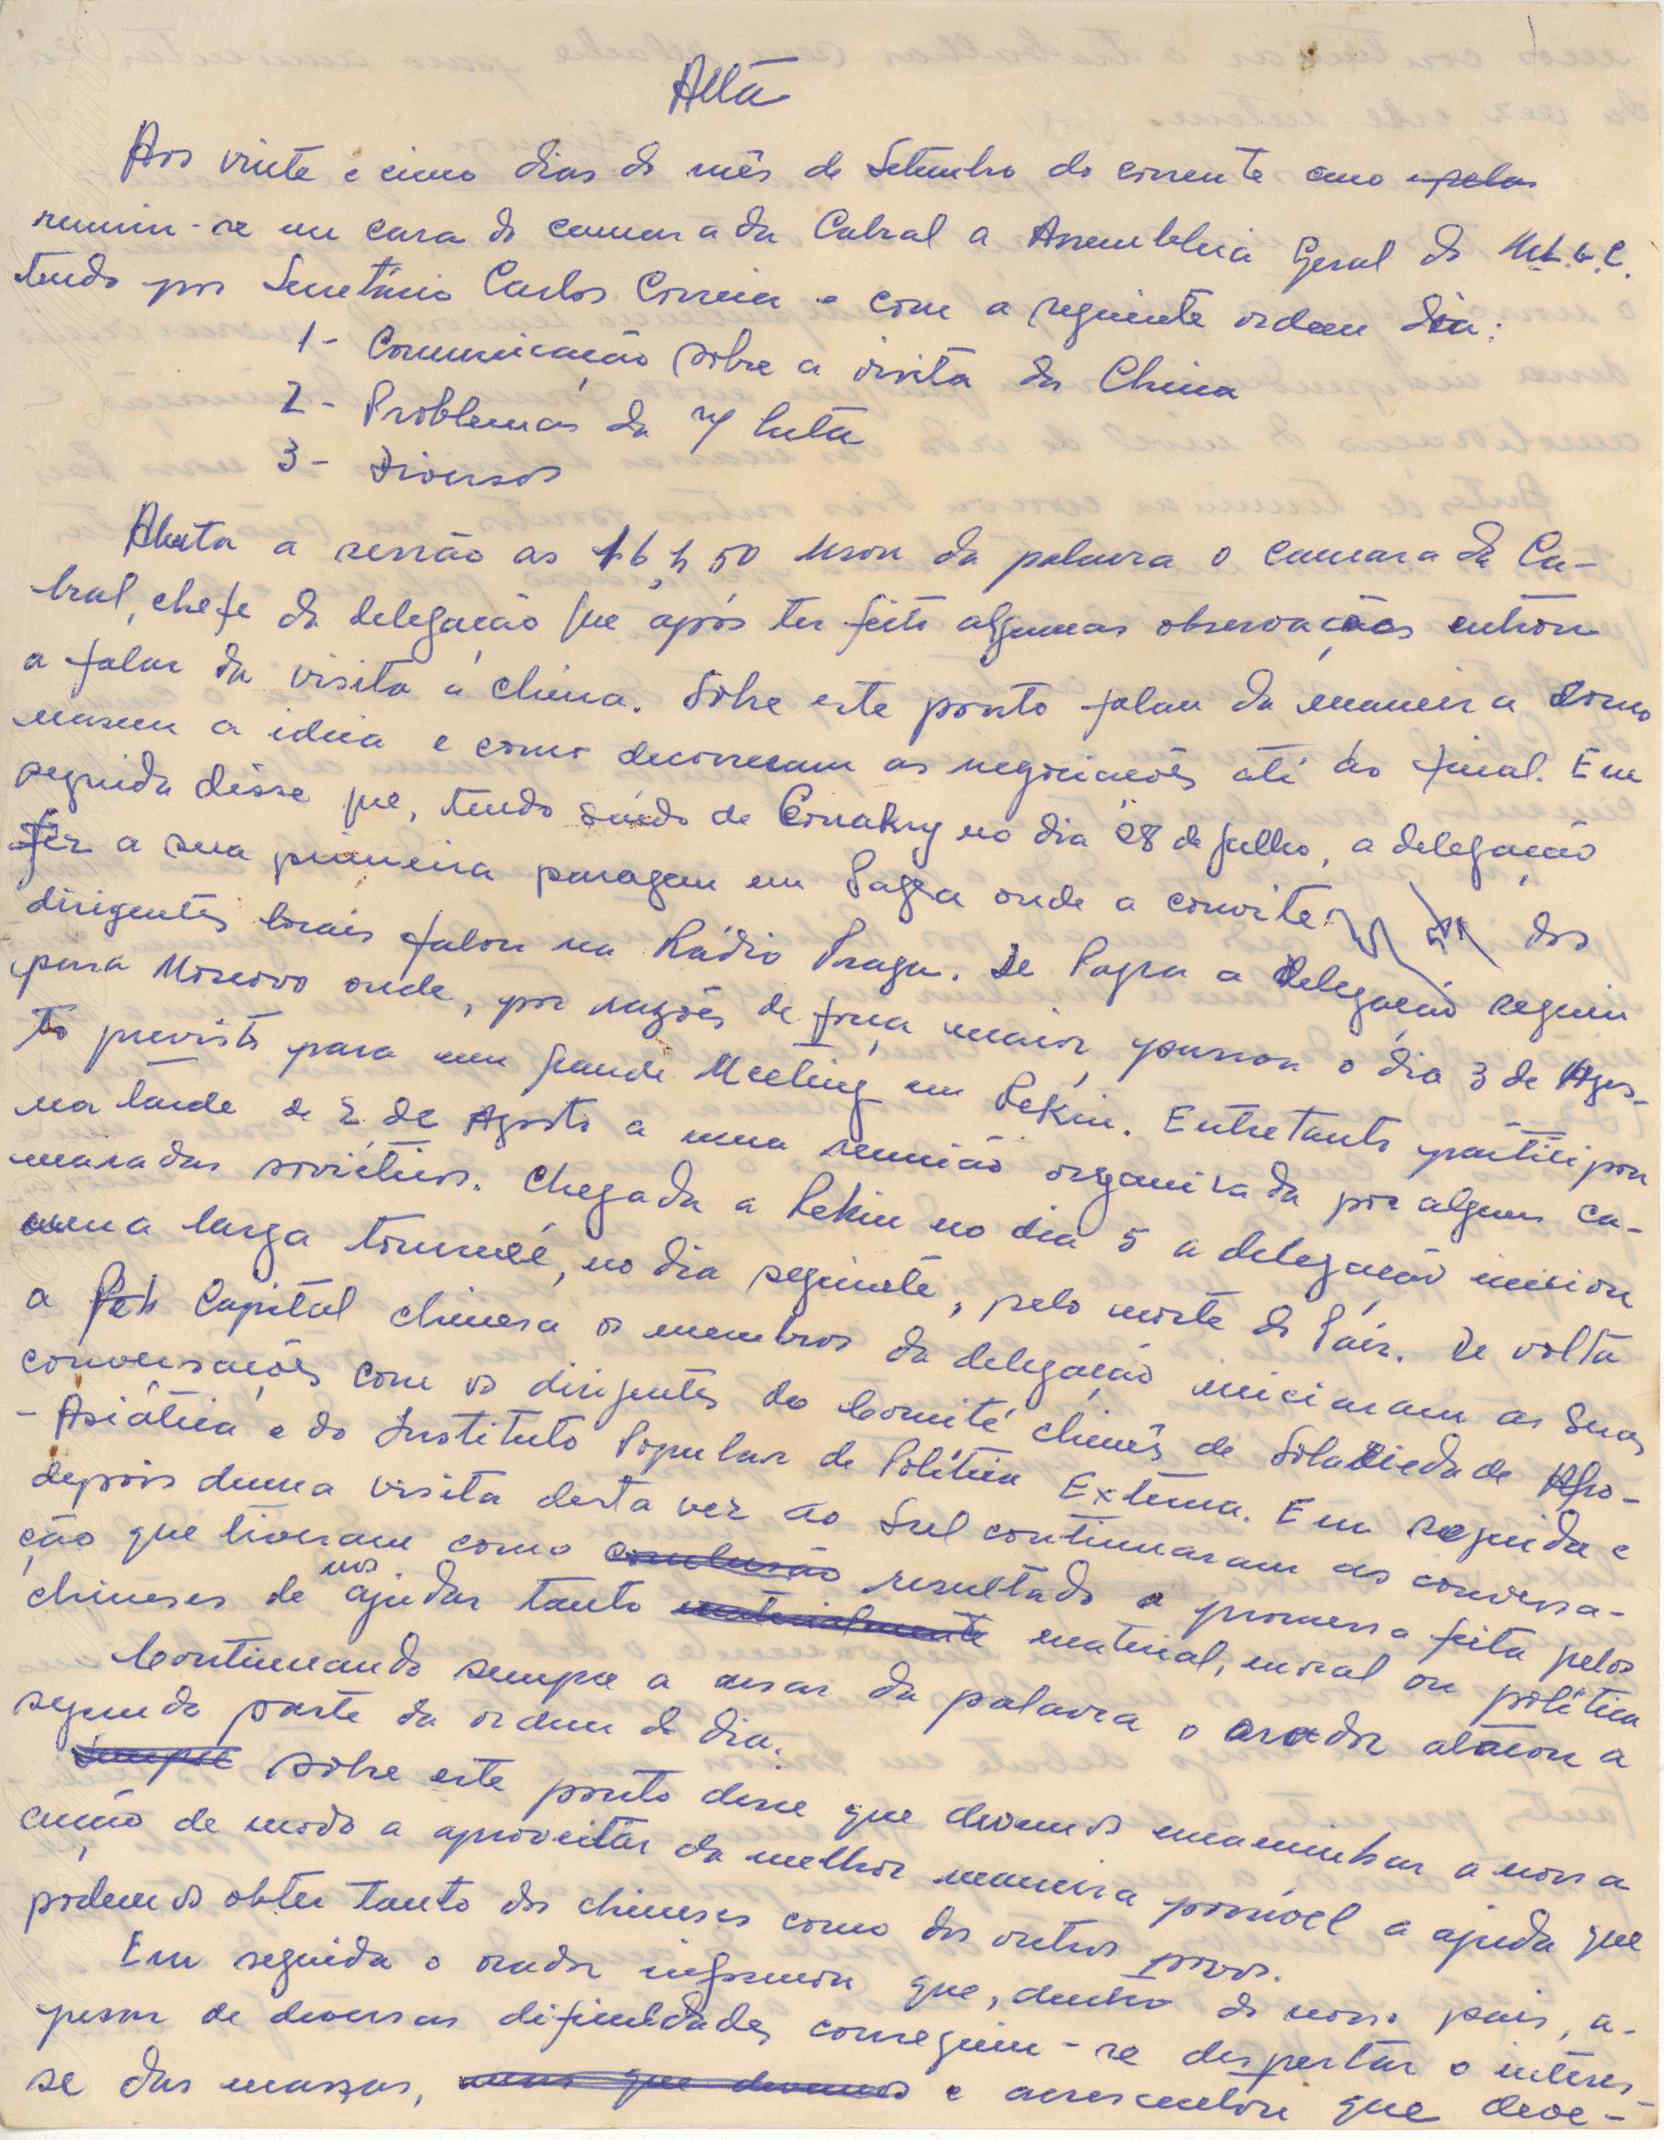 Acta
Aos vinte e cinco dias do mês de Setembro do corrente ano pelas
reuniu-se em casa do camarada Cabral a Assembleia Geral do M.L.G.C.
tendo por Secretário Carlos Correia e com a seguinte ordem dia:
1- Comunicação sobre a visita da China
2- Problemas da n/ luta
3- Diversos
Aberta a sessão as 16,h 50 usou da palavra o camarada Ca-
bral, chefe da delegação que após ter feito algumas observações entrou
a falar da visita à China. Sobre este ponto falou da maneira como
nasceu a ideia e como decorreram as negociações até ao final. Em
seguida disse que, tendo saído de Conakry no dia 28 de Julho, a delegação
fez a sua primeira paragem em Pagra onde a convite dos
dirigentes locais falou na Rádio Praga. De Pagra a delegação seguiu
para Moscovo onde, por razões de força maior, passou o dia 3 de Agos-
to previsto para um grande Meeting em Pekin. Entretanto participou
na tarde de 2 de Agosto a uma reunião organizada por alguns ca-
maradas soviéticos. Chegada a Pekin no dia 5 a delegação iniciou
uma larga tourneé, no dia seguinte, pelo norte do País. De volta
a Pek Capital chinesa os membros da delegação iniciaram as suas
conversações com os dirigentes do Comité chinês de Solariedade Afro-
-Asiática e do Instituto Popular de Política Externa. Em seguida e
depois duma visita desta vez ao Sul continuaram as conversa-
ção que tiveram como conclusão resultado a promessa feita pelos
chineses de nos ajudar tanto materialmente material, moral ou política
Continuando sempre a usar da palavra o orador atacou a
segunda parte da ordem do dia.
Sempre sobre este ponto disse que devemos encaminhar a nossa
acção de modo a aproveitar da melhor maneira possível a ajuda que
podemos obter tanto dos chineses como dos outros povos.
Em seguida o orador informou que, dentro do nosso país, a-
pesar de diversas dificuldades conseguiu-se despertar o interes-
se das massas, mas que devemos e acrescentou que deve-